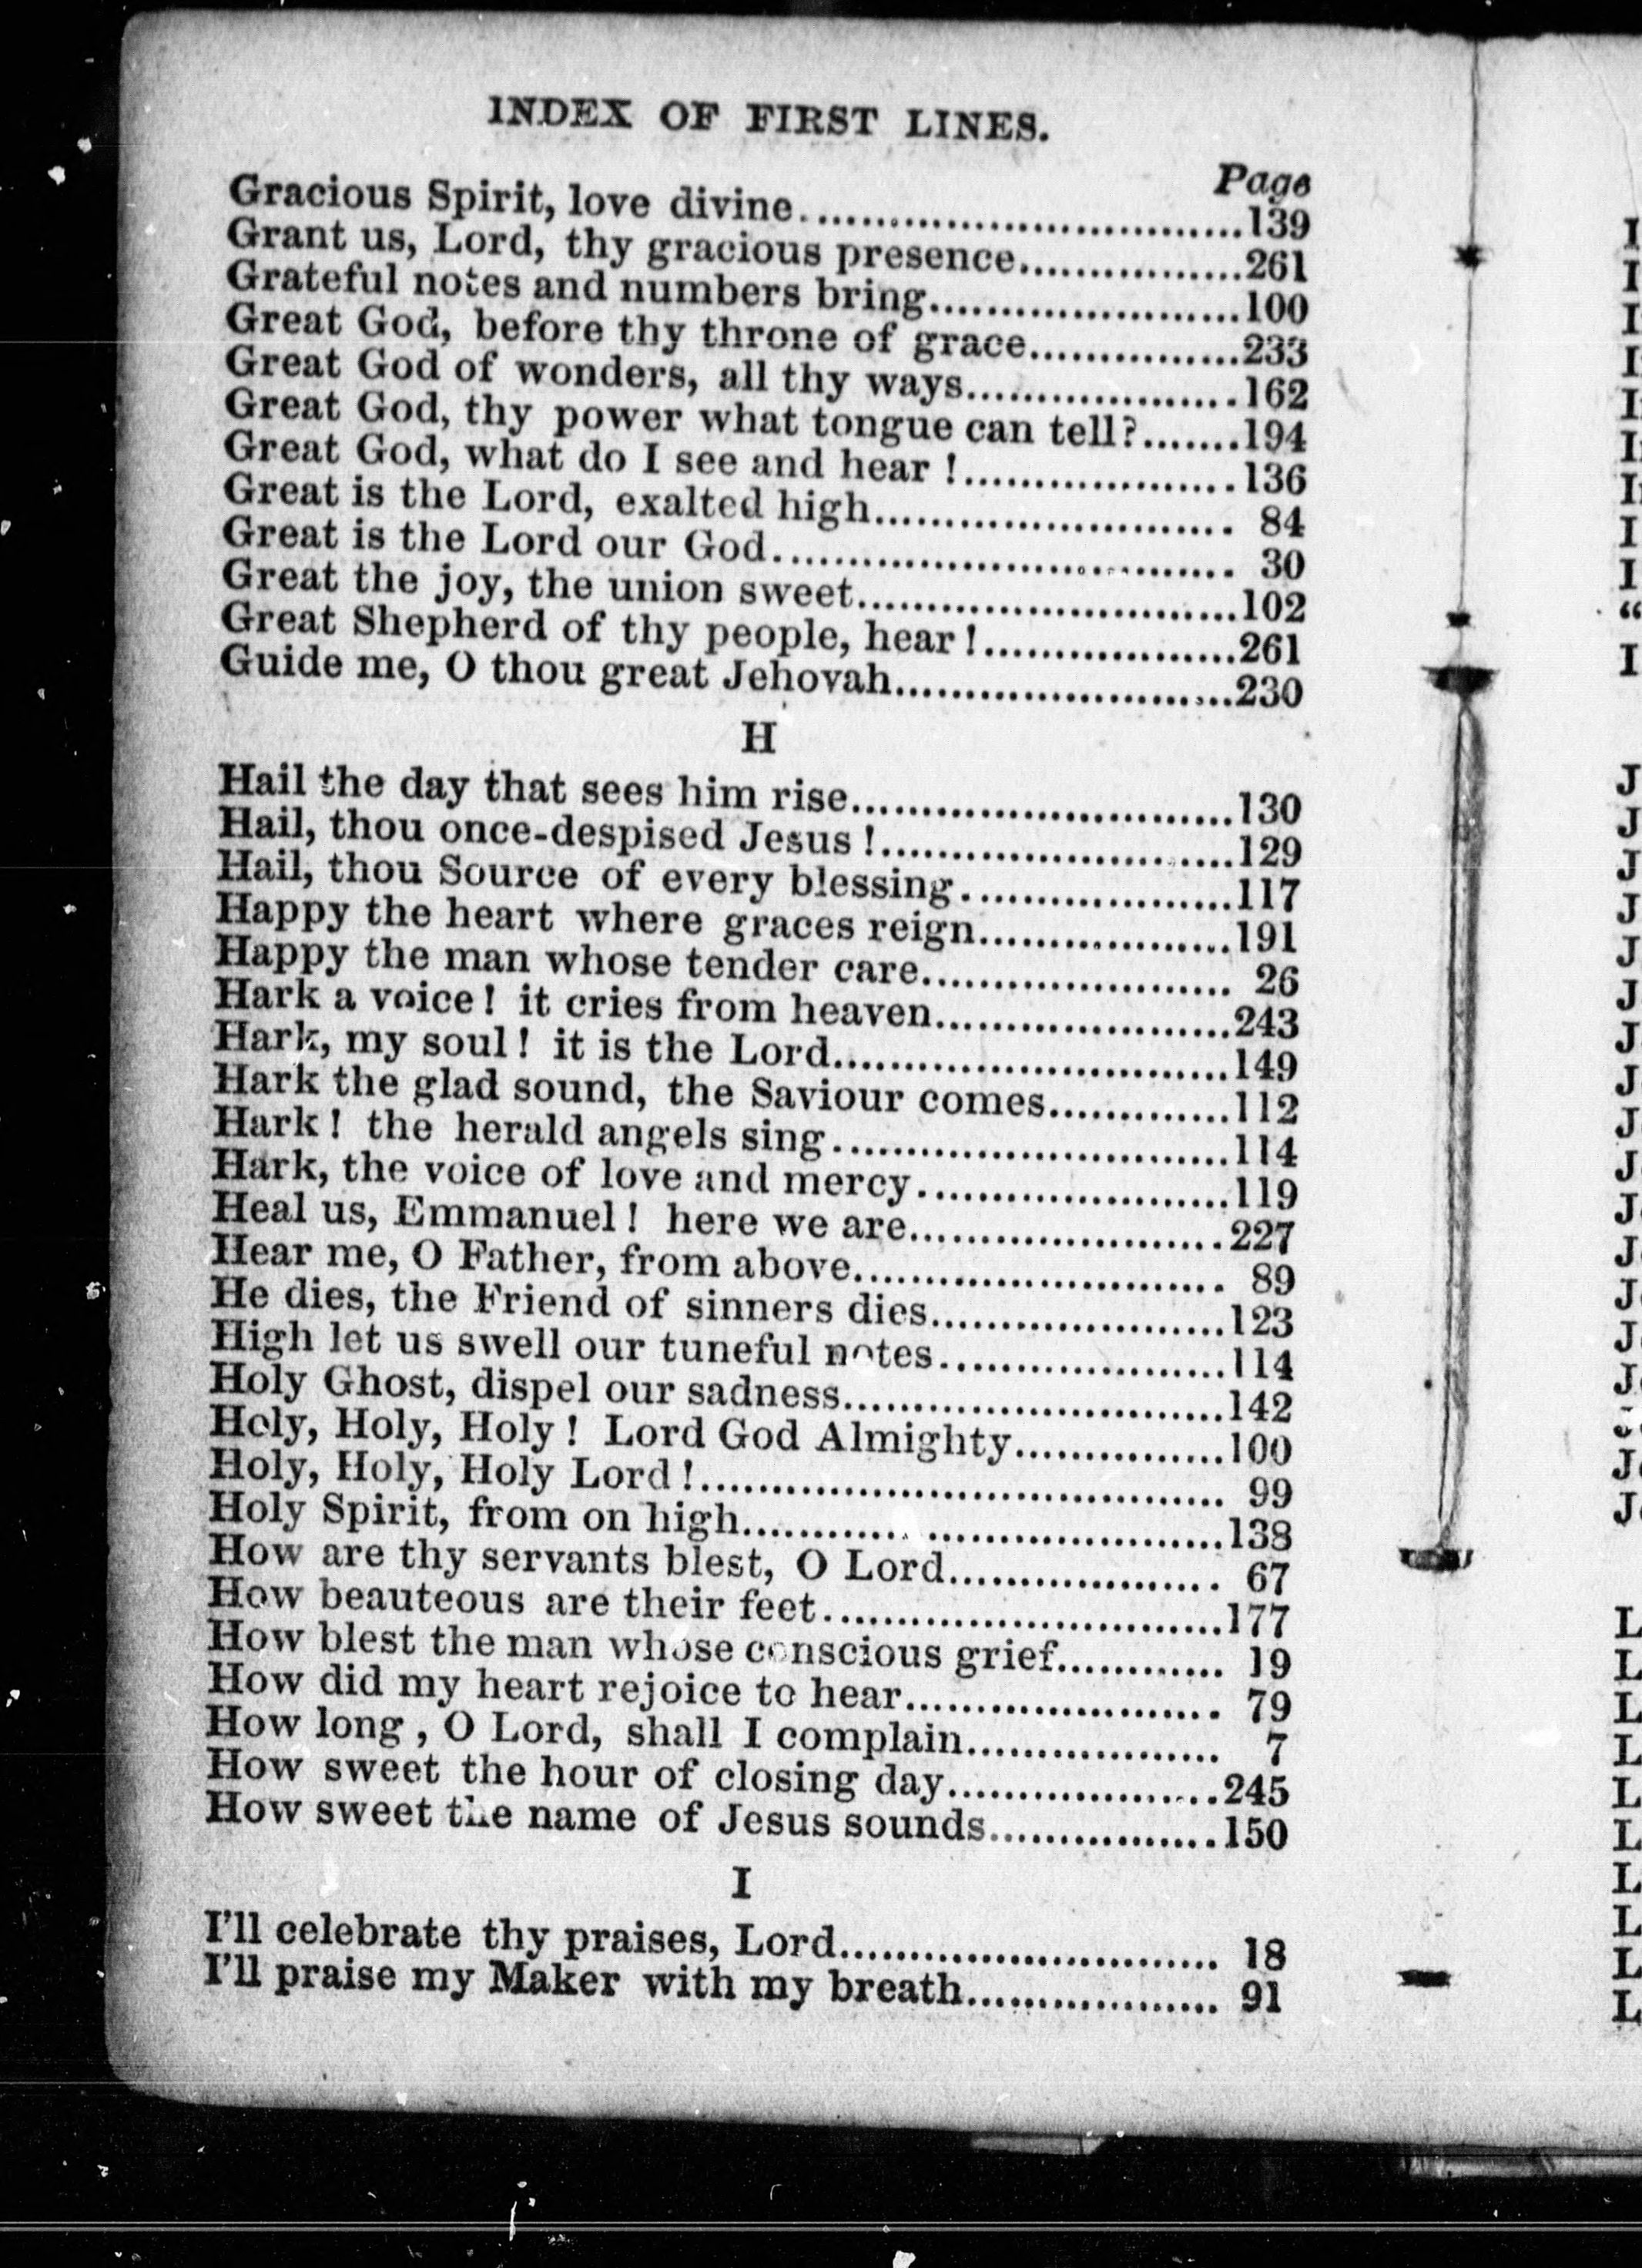 INDEX OF FIRST LINES.
Page
Gracious Spirit, love divine.................................139
Grant us, Lord, thy gracious presence.................261
Grateful notes and numbers bring.......................100
Great God, before thy throne of grace................233
Great God of wonders, all thy ways....................162
Great God, thy power what tongue can tell?.......194
Great God, what do I see and hear !....................136
Great is the Lord, exalted high.......................... 84
Great is the Lord our God................................. 30
Great the joy, the union sweet............................102
Great Shepherd of thy people, hear !...................261
Guide me, O thou great Jehovah.........................230
H
Hail the day that sees him rise............................130
Hail, thou once-despised Jesus !..........................129
Hail, thou Source of every blessing....................117
Happy the heart where graces reign...................191
Happy the man whose tender care....................... 26
Hark a voice ! it cries from heaven......................243
Hark, my soul ! it is the Lord.............................149
Hark the glad sound, the Saviour comes.............112
Hark ! the herald angels sing.............................114
Hark, the voice of love and mercy.......................119
Heal us, Emmanuel ! here we are.......................227
Hear me, O Father, from above........................... 89
He dies, the Friend of sinners dies......................123
High let us swell our tuneful notes.....................114
Holy Ghost, dispel our sadness............................142
Holy, Holy, Holy ! Lord God Almighty...............100
Holy, Holy, Holy Lord !..................................... 99
Holy Spirit, from on high..................................138
How are thy servants blest, O Lord.................... 67
How beauteous are their feet.............................177
How blest the man whose conscious grief............ 19
How did my heart rejoice to hear....................... 79
How long , O Lord, shall I complain................... 7
How sweet the hour of closing day....................245
How sweet the name of Jesus sounds.................150
I
I'll celebrate thy praises, Lord........................... 18
I'll praise my Maker with my breath................... 91